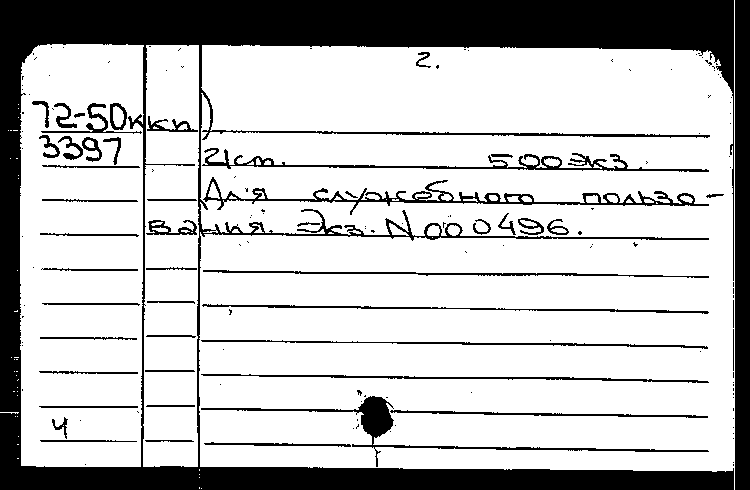 2.
72-50ккп)
3397
21 ст. 500 экз.
Для служебного пользо-
вания. Экз. N 000496.
ч